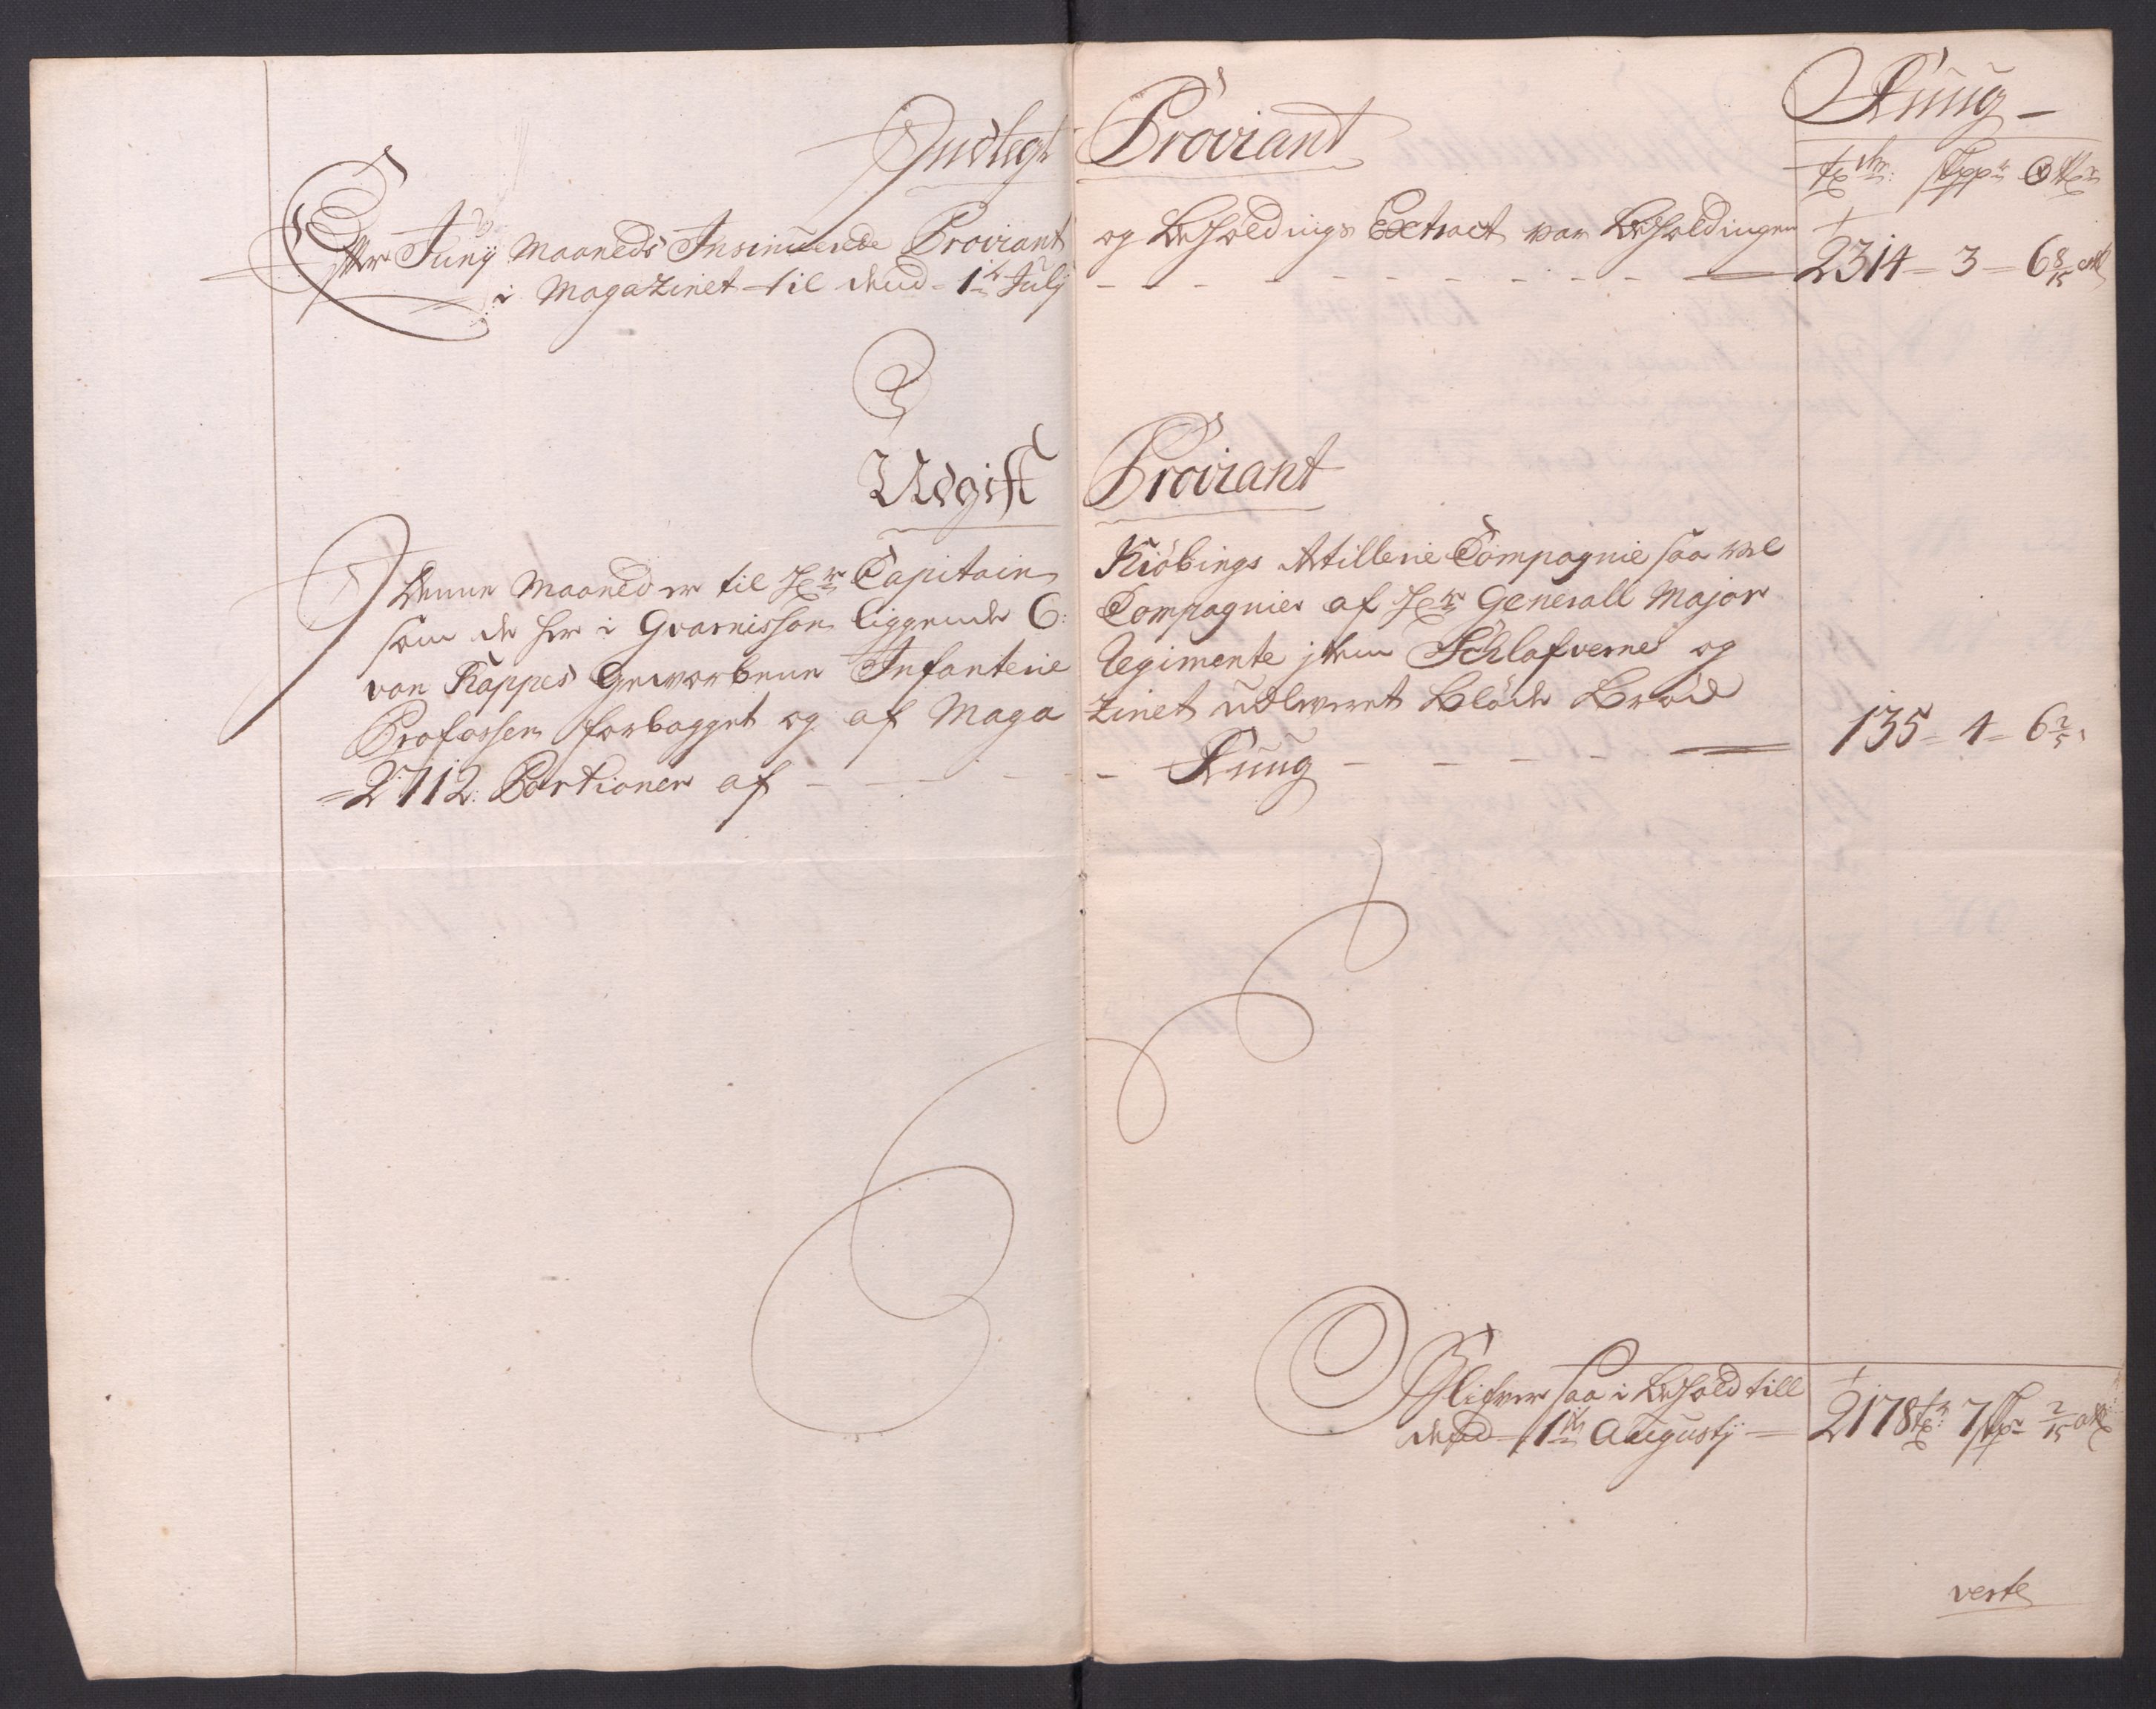 Indlegt Proviant
Ruug
tdr: skpr Otkr
Efter Junij Maaneds Insinuerede Proviant og Beholdnings Extract var Beholdingen
i Magazinet til dend 1te Julij 2314 = 3 = 6 8/15 otk
Udgift Proviant
J Denne Maaned er til Hr. Capitain Kiöbings Artillerie Compagnie saa vel
som de her i Gvarnisson liggende 6: Compagnier af Hr. Generall Major
von Kappes Geworbene Infanterie Regimente jtem Schlafverne og
Profossen forbagget og af Maga zinet udleveret Bløde Brød
=2712: Portioner af Ruug 135 = 4 = 6 2/5
Blifver saa i Behold till
dend 1te Augustj = 2178 tdr: 7 skpr 2/15 otk:
verte